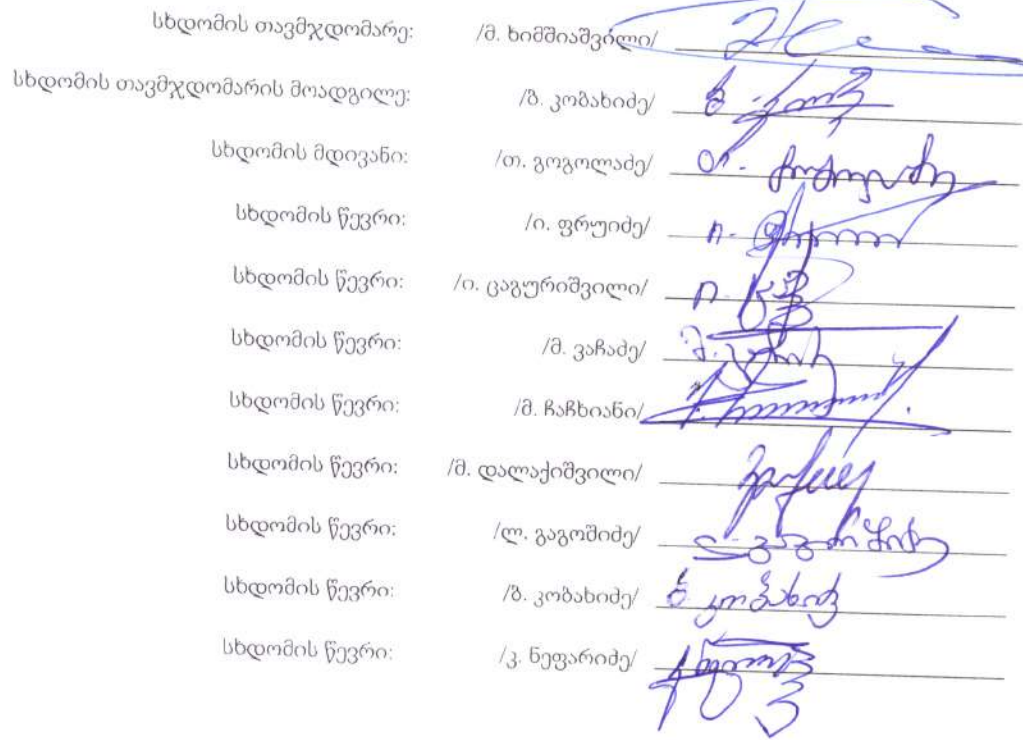 სხდომის თავმჯდომარე: /მ. ხიმშიაშვილი/
სხდომის თავმჯდომარის მოადგილე: /ბ. კობახიძე/
სხდომის მდივანი: /თ. გოგოლაძე/
სხდომის წევრი: /ი. ფრუიძე/
სხდომის წევრი: /ი. ცაგურიშვილი/
სხდომის წევრი: /მ. ვაჩაძე/ მ.
სხდომის წევრი: /მ. ჩაჩხიანი/
სხდომის წევრი: /მ. დალაქიშვილი/
სხდომის წევრი: /ლ. გაგოშიძე/ ლ. გაგოშიძე
სხდომის წევრი: /ბ. კობახიძე/ ბ კობახიძე
სხდომის წევრი: /კ. ნეფარიძე/